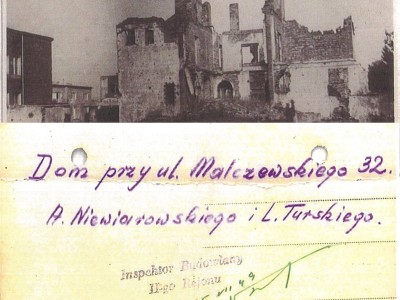 Dom przy ul. Malczewskiego 32.
A. Niewiarowskiego i L. Turskiego.
Inspektor Budowlany
II-go Rejonu